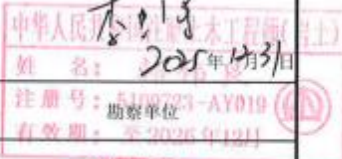 中华人民共和国注册土木工程师(岩土)
姓 名:
2025年12月31日
注册号: 5100723-AY019
勘察单位
有效期: 至2026年12月